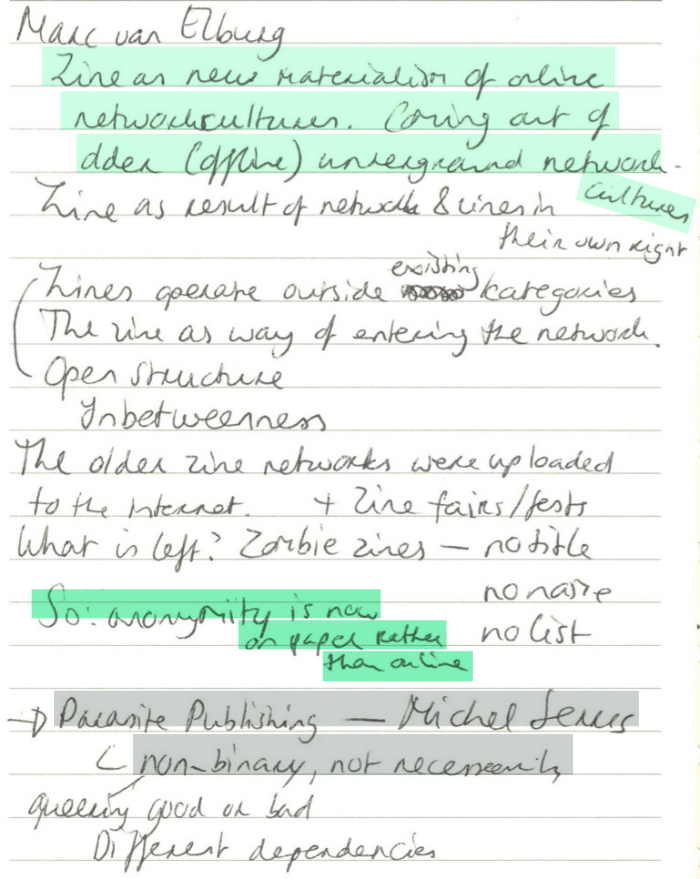 Marc van Elburg
Zine as new materialism of online
networkcultures. Coming out of
older (offline) underground network-
cultures
Zine as result of network & zines in
their own right
Zines operate outside existing categories
The zine as way of entering the network.
Open structure
Inbetweenness
The older zine networks were uploaded
to the Internet. + Zine fairs/fests
What is left? Zombie zines — no title
no name
no list
So: anonymity is now
on paper rather
than online
→ Parasite Publishing — Michel Serres
non-binary, not necessarily
queering good or bad
Different dependencies